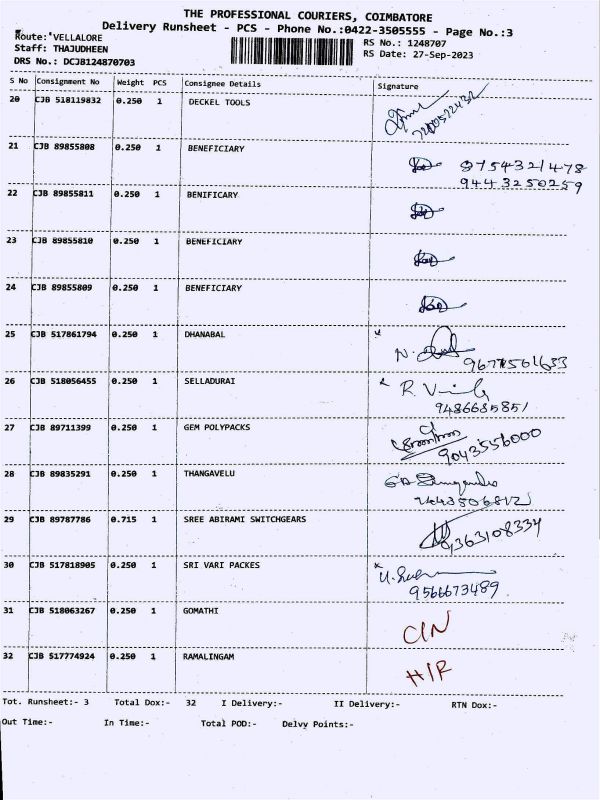 THE PROFESSIONAL COURIERS, COIMBATORE
Delivery Runsheet - PCS - Phone No.:0422-3505555 - Page No.:3
Route: VELLALORE
RS No.: 1248707
Staff: THAJUDHEEN
RS Date: 27-Sep-2023
DRS No.: DCJB124870703
S No Consignment No Weight PCS Consignee Details Signature
20 CJB 518119832 0.250 1 DECKEL TOOLS
21 CJB 89855808 0.250 1 BENEFICIARY 9754321478
9443250259
22 CJB 89855811 0.250 1 BENIFICARY
23 CJB 89855810 0.250 1 BENEFICIARY
24 CJB 89855809 0.250 1 BENEFICIARY
25 CJB 517861794 0.250 1 DHANABAL
26 CJB 518056455 0.250 1 SELLADURAI
9486685851
27 CJB 89711399 0.250 1 GEM POLYPACKS
9043556000
28 CJB 89835291 0.250 1 THANGAVELU
29 CJB 89787786 0.715 1 SREE ABIRAMI SWITCHGEARS
30 CJB 517818905 0.250 1 SRI VARI PACKES
9566673489
31 CJB 518063267 0.250 1 GOMATHI CIN
32 CJB 517774924 0.250 1 RAMALINGAM H/R
Tot. Runsheet:- 3 Total Dox:- 32 I Delivery:- II Delivery:- RTN Dox:-
Out Time:- In Time:- Total POD:- Delvy Points:-